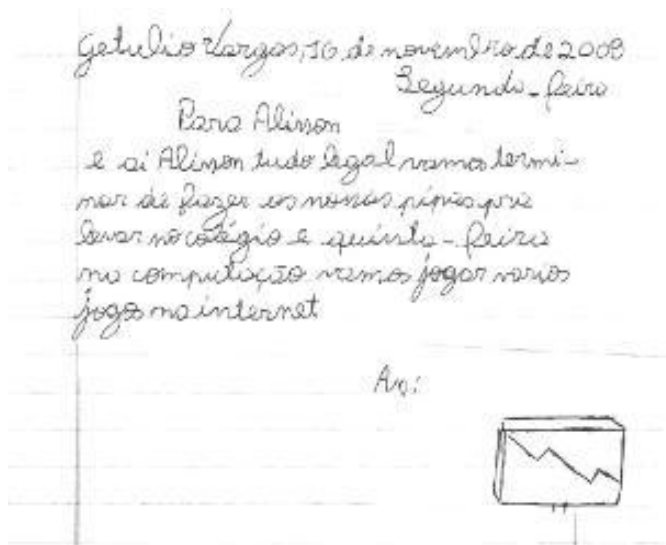 Getulio Vargas, 16, de novembro de 2009
Segunda-feira
Para Alisson
e ai Alisson tudo legal vamos termi-
nar de fazer as nossas pipas pra
levar no colégio e quinta-feira
na computação vamos jogar varios
jogos na internet
Ass: